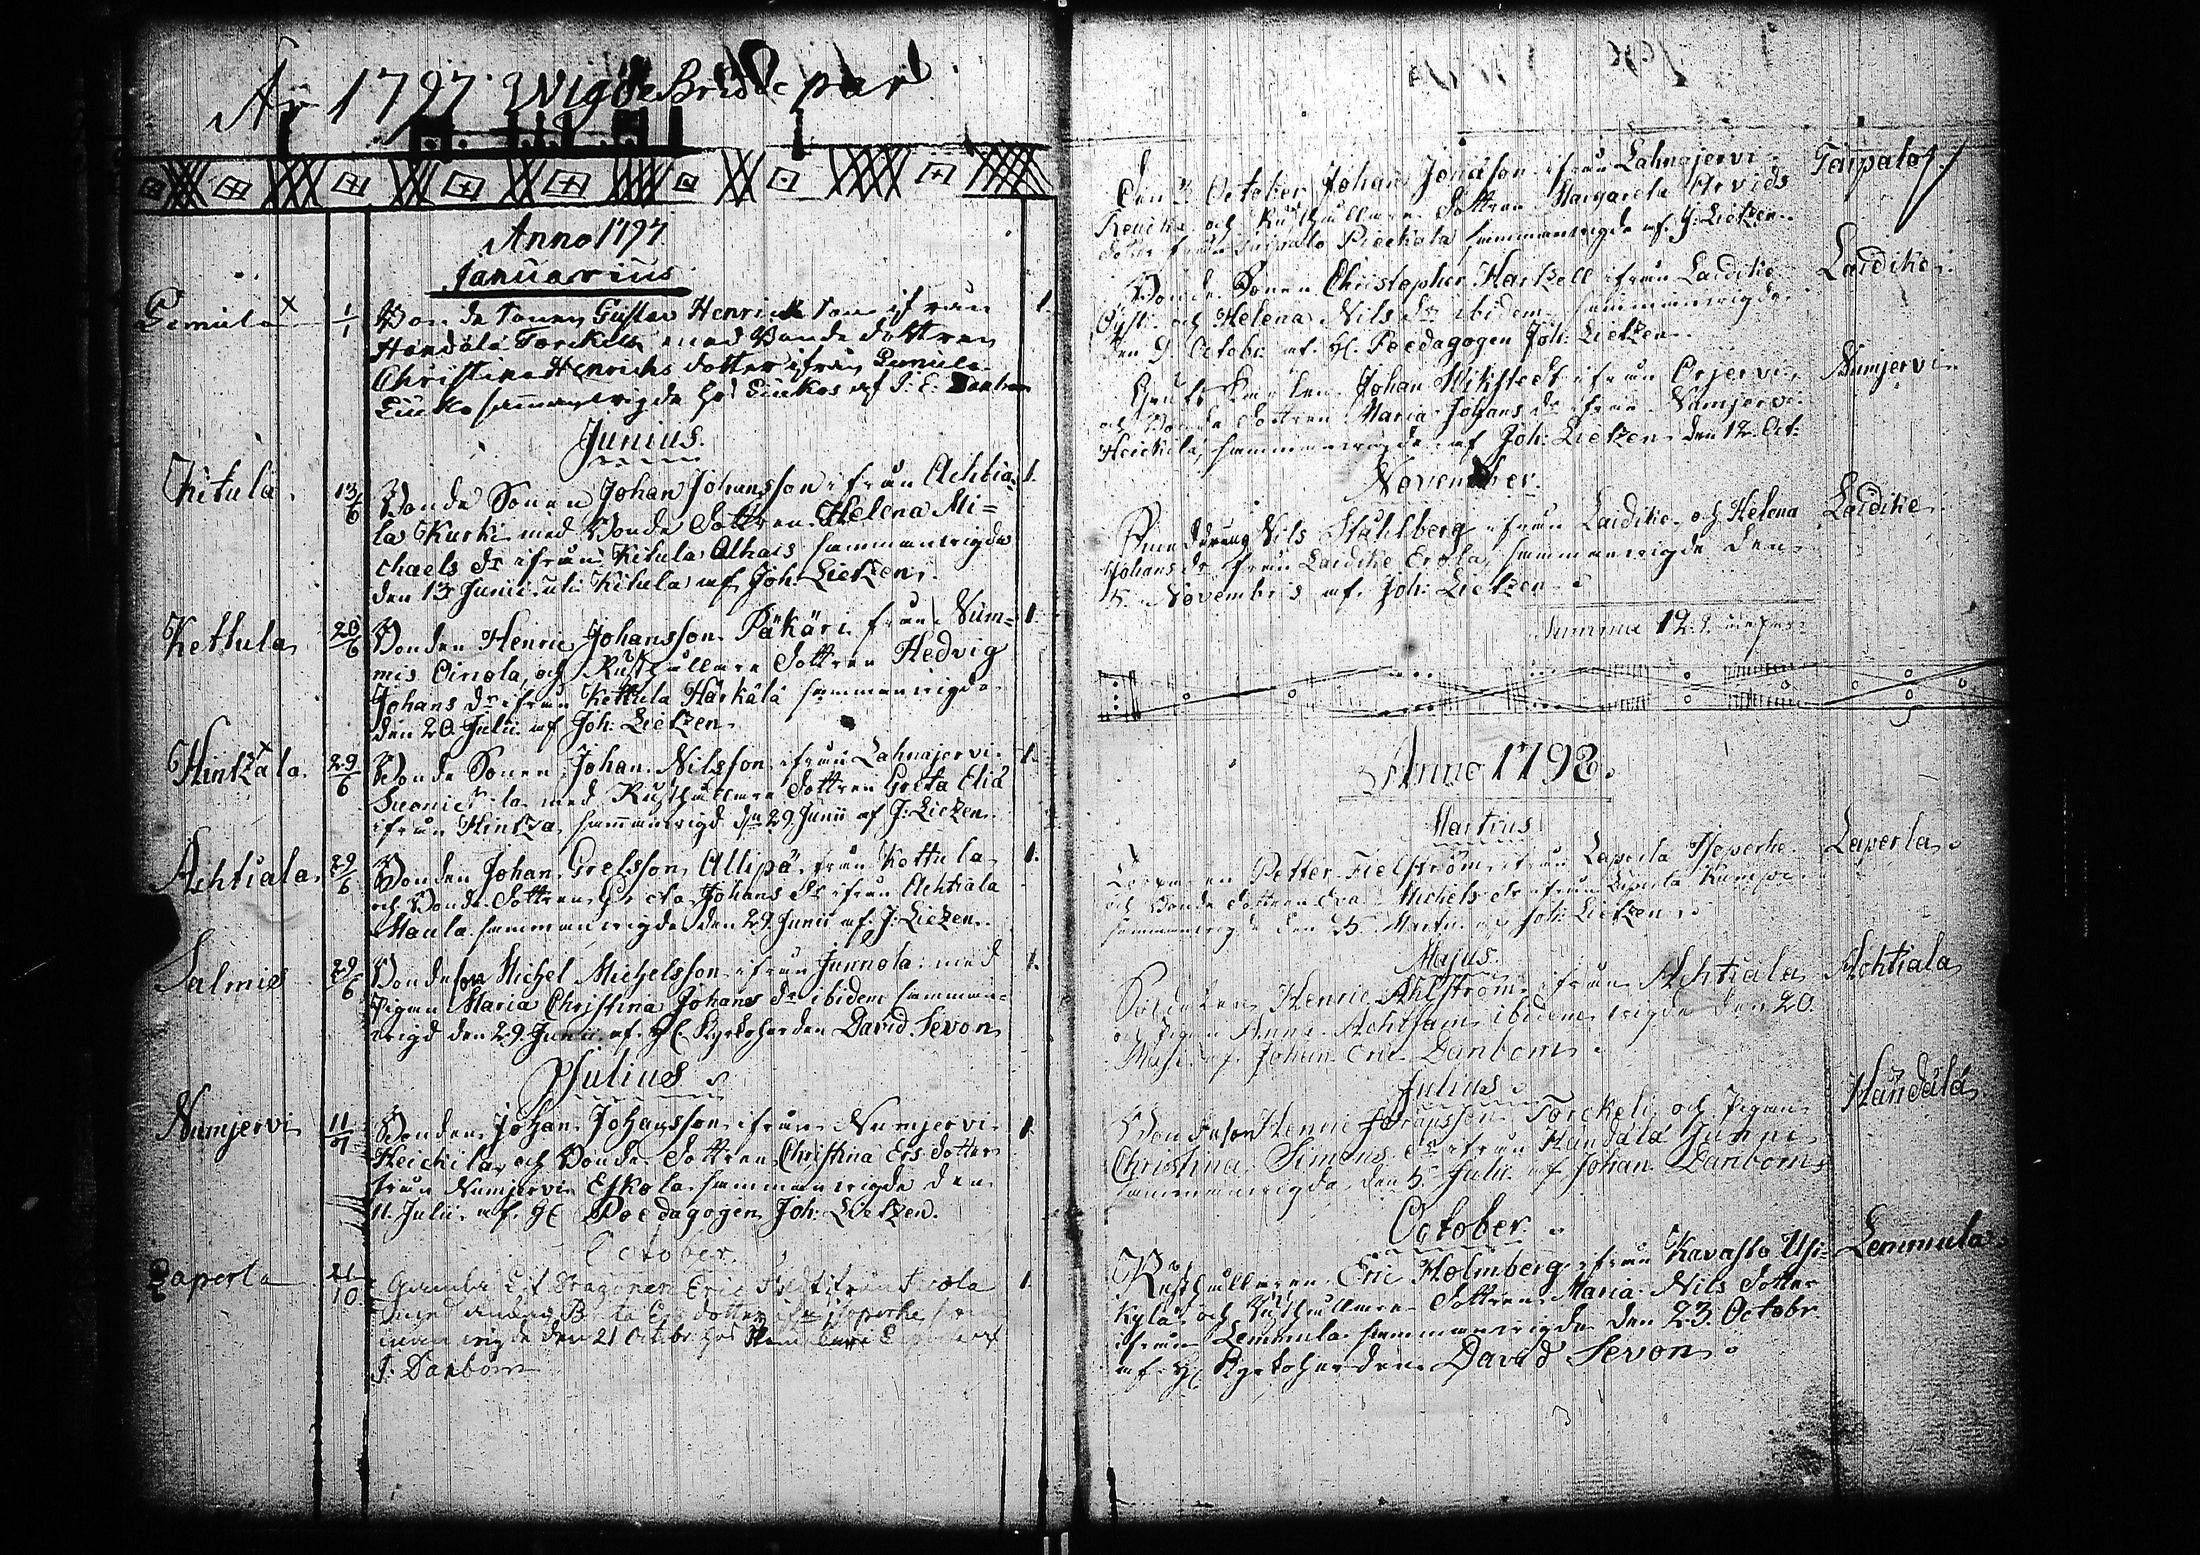 År 1797 Wigde Brude par
Anno 1797.
Januarius
Gemula 1/1 Bonde Sonen Gustav Henrickson ifrån
Handälä Torckeli med Bonde dottren
Christina Henrichs dotter ifrån Gemula
sammanvigde hos af J. E. Danbom
Junius.
Kitula. 13/6 Bonde Sonen Johan Johansson ifrån Achtia- 1.
la Kurki med Bonde Dottren Helena Mi=
chaels dr ifrån Kitula Alhais sammanvigde
den 13 Junii uti Kitula af Joh: Lietzen.
Kettula 20/6 Bonden Henric Johansson Päkäri från Num= 1.
mis Oinola, och Rusthållare Dottren Hedvig
Johans dr ifrån Kettula Härkälä sammanvigde
den 20 Julii af Joh: Lietzen.
Hintzala. 29/6 Bonde Sonen Johan Nilsson ifrån Lahnajervi 1.
med Rusthållare Dottren Greta Elia
ifrån Hintza, sammanvigd den 29 Junii af J: Lietzen.
Achtiala. 29/6 Bonden Johan Grelsson Allipä från Kettula 1.
och Bonde Dottren Greta Johans dr ifrån Achtiala
Maula sammanvigde den 29 Junii af J: Lietzen.
Salmis 29/6 Bondeson Michel Michelsson ifrån Junnola med 1.
Pigan Maria Christina Johans dr ibidem samman=
vigd den 29. Junii af H. Kyrkoherden David Sevon
Julius
Numjervi 11/7 Bonden Johan Johansson ifrån Numjervi 1.
Heickilä, och Bonde Dottren Christina Ers dotter
från Numjervi Eskola sammanvigde den
11. Julii af H. Pædagogen Joh: Lietzen.
October.
Laperla 21/10 Gamla Dragonen Eric ifrån 1.
med Enkan Brita Ers dotter
man vigde den 21 Octobr hos af
J. Danbom
Den 3 October Johan Jonasson ifrån Lahnajervi Taipale
och Rusthållare Dottren Margareta Arvids
doter från Pieckala sammanvigde af J: Lietzen.
Bonde Sonen Christopher Hartzell ifrån Laidike Laidike.
och Helena Nils dr ibidem sammanvigde
den 9. Octobr af H. Pædagogen Joh: Lietzen.
Johan Wikstedt ifrån Orjervi Numjervi
och Bonde Dottren Maria Johans dr ifrån Numjervi
Heickilä, sammanvigde af Joh: Lietzen den 12. Oct:
November.
Nils Ståhlberg ifrån Laidike och Helena Laidike
Johans dr ifrån Laidike Erola, sammanvigde den
5. Novembris af Joh: Lietzen
Summa 12.
Anno 1798.
Martius
Petter Fielström ifrån Laperla Isoperhe Laperla
och Bonde dottren Eva Michels dr ifrån Laperla
sammanvigde den 25 Martii af Joh: Lietzen.
Majus.
Soldaten Henric Ahlström ifrån Achtiala Achtiala
och Pigan Anna ibidem vigde den 20.
Maji af Johan Eric Danbom
Julius
Bondeson Henric Torckeli och Pigan Handälä
Christina Simons dr ifrån Handälä
sammanvigde den 5. Julii af Johan Danbom
October
Rusthållaren Eric Holmberg ifrån Kavasto Usi= Lemmula
kylä och Rusthållare Dottren Maria Nils dotter
ifrån Lemmula sammanvigde den 23. Octobr.
af H. Kyrkoherden David Sevon